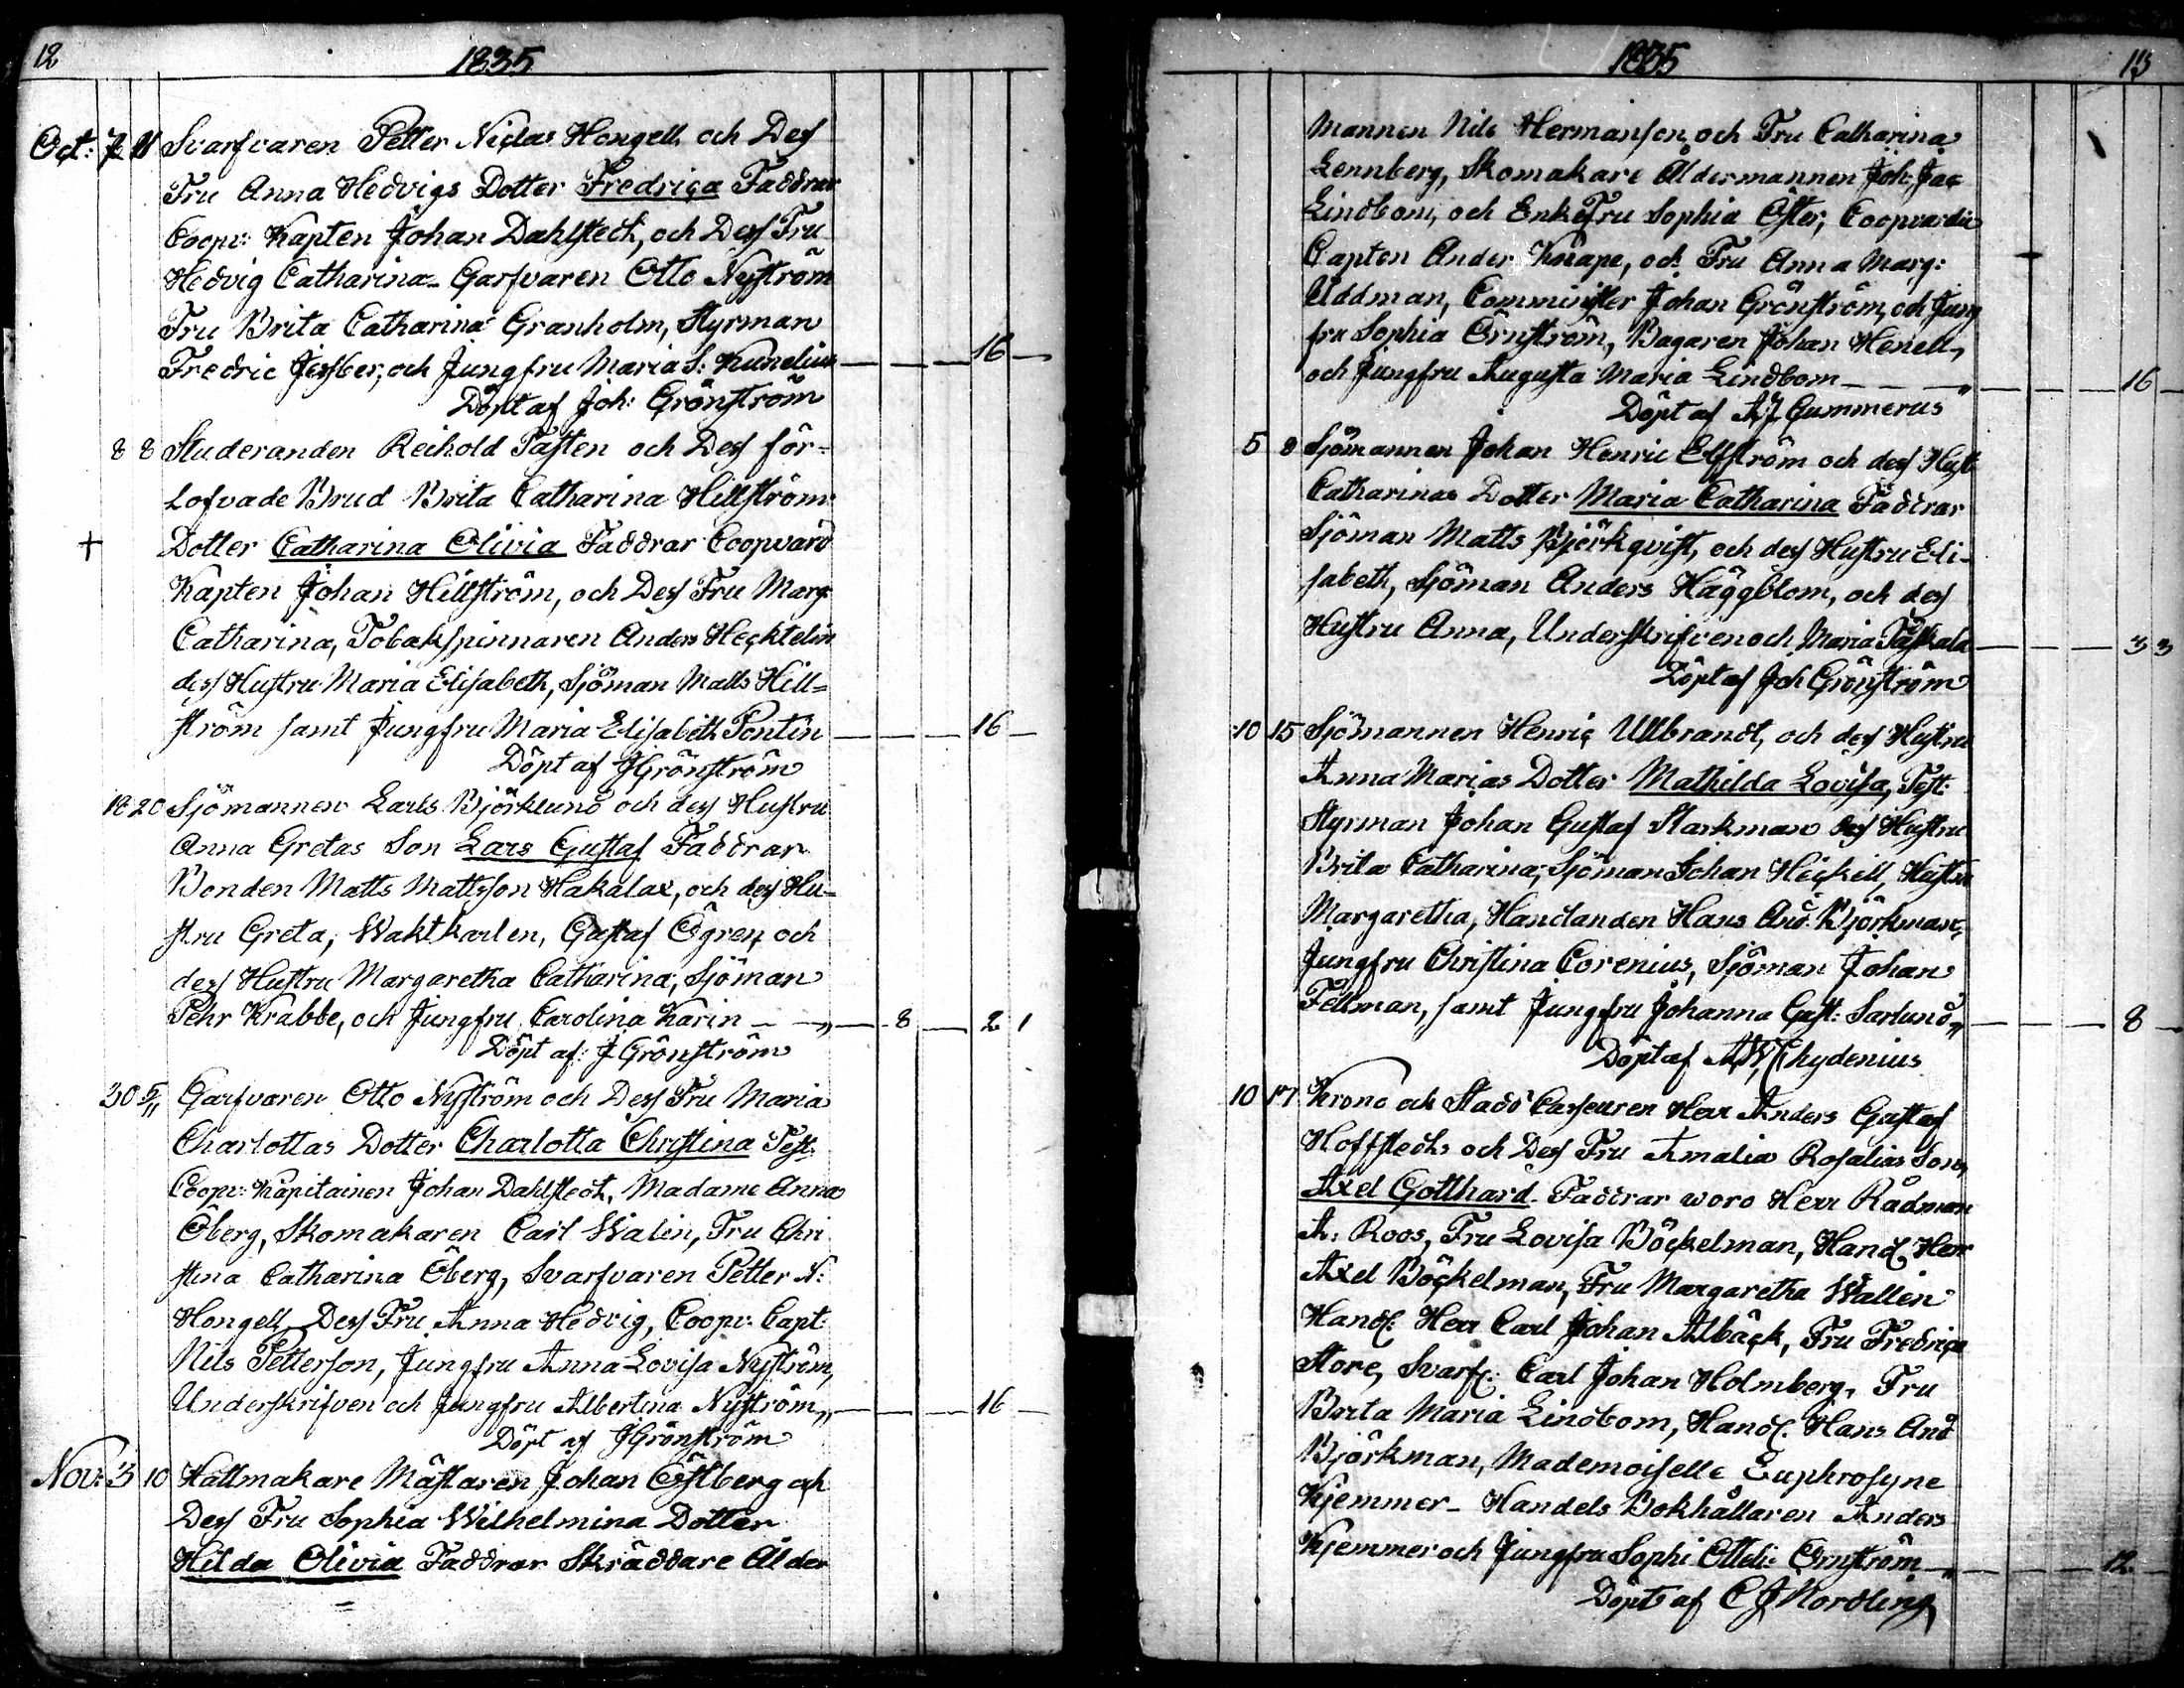 12 1835
Oct: 7 11 Svarfvaren Petter Niclas Hongell och Dess
Fru Anna Hedvigs Dotter Fredrica Faddrar
Coopv: Kapten Johan Dahlstedt, och Dess Fru
Hedvig Catharina Garfvaren Otto Nyström
Fru Brita Catharina Granholm, Styrman
Fredric Jesber, och Jungfru Maria S: Kunelius 16
Döpt af Joh: Grönström
8 8 Studeranden Reihold Tasten och Dess för=
lofvade Brud Brita Catharina Hillström
+ Dotter Catharina Olivia Faddrar Coopvard
Kapten Johan Hillström, och Dess Fru Marg:
Catharina, Tobakspinnaren Anders Hecktelin
dess Hustru Maria Elisabeth, Sjöman Matts Hill=
ström samt Jungfru Maria Elisabeth Pontin 16
Döpt af J Grönström
18 20 Sjömannen Lars Björklund och dess Hustru
Anna Gretas Son Lars Gustaf Faddrar
Bonden Matts Mattsson Hakalax, och dess Hu-
stru Greta, Waktkarlen, Gustaf Ögren och
dess Hustru Margaretha Catharina, Sjöman
Pehr Krabbe, och Jungfru Carolina Karin 8 2 1
Döpt af: J Grönström
30 5/11 Garfvaren Otto Nyström och Dess Fru Maria
Charlottas Dotter Charlotta Christina Test:
Coopv: Kapitainen Johan Dahlstedt, Madame Anna
Öberg, Skomakaren Carl Walin, Fru Chri
stina Catharina Öberg, Svarfvaren Petter N:
Hongell, Dess Fru Anna Hedvig, Coopv: Capt:
Nils Petterson, Jungfru Anna Lovisa Nyström,
Underskrifven och Jungfru Albertina Nyström, 16
Döpt af J Grönström
Nov: 3 10 Hattmakare Mästaren Johan Östberg och
Dess Fru Sophia Wilhelmina Dotter
Hilda Olivia Faddrar Skräddare Ålder
1835 13
mannen Nils Hermanson, och Fru Catharina
Lennberg, Skomakare Åldermannen Joh: Jac
Lindbom, och EnkeFru Sophia Öster, Coopvardie
Capten Ander Knape, och Fru Anna Marg:
Uddman, Comminister Johan Grönström, och Jung
fru Sophia Örnström, Bagaren Johan Henell,
och Jungfru Augusta Maria Lindbom 16
Döpt af A J Gummerus
5 8 Sjömannen Johan Henric Elfström och dess Hust
Catharinas Dotter Maria Catharina Faddrar
Sjöman Matts Björkqvist, och dess Hustru Eli-
sabeth, Sjöman Anders Häggblom, och dess
Hustru Anna, Underskrifven och Maria Taskala 3 3
Döpt af Joh Grönström
10 15 Sjömannen Henric Ullbrandt, och dess Hustru
Anna Marias Dotter Mathilda Lovisa, Test:
Styrman Johan Gustaf Starkman dess Hustru
Brita Catharina, Sjöman Johan Heickell, Hustru
Margaretha, Handlanden Hans And: Björkman,
Jungfru Christina Corenius, Sjöman Johan
Fellman, samt Jungfru Johanna Gust: Sarlund 8
Döpt af A W Chydenius
10 17 Krono och Stads Casseuren Herr Anders Gustaf
Hoffstedts och Dess Fru Amalia Rosalias Son,
Axel Gotthard Faddrar woro Herr Rådman
A: Roos, Fru Lovisa Böckelman, Handl: Herr
Axel Böckelman, Fru Margaretha Wallein
Handl: Herr Carl Johan Albäck, Fru Fredrica
Store, Svarf: Carl Johan Holmberg, Fru
Brita Maria Lindbom, Handl: Hans And
Björkman, Mademoiselle Euphrosyne
Kjemmer- Handels Bokhållaren Anders
Kjemmer och Jungfru Sophi Ottili: Örnström 12
Döpt af C J Nordling